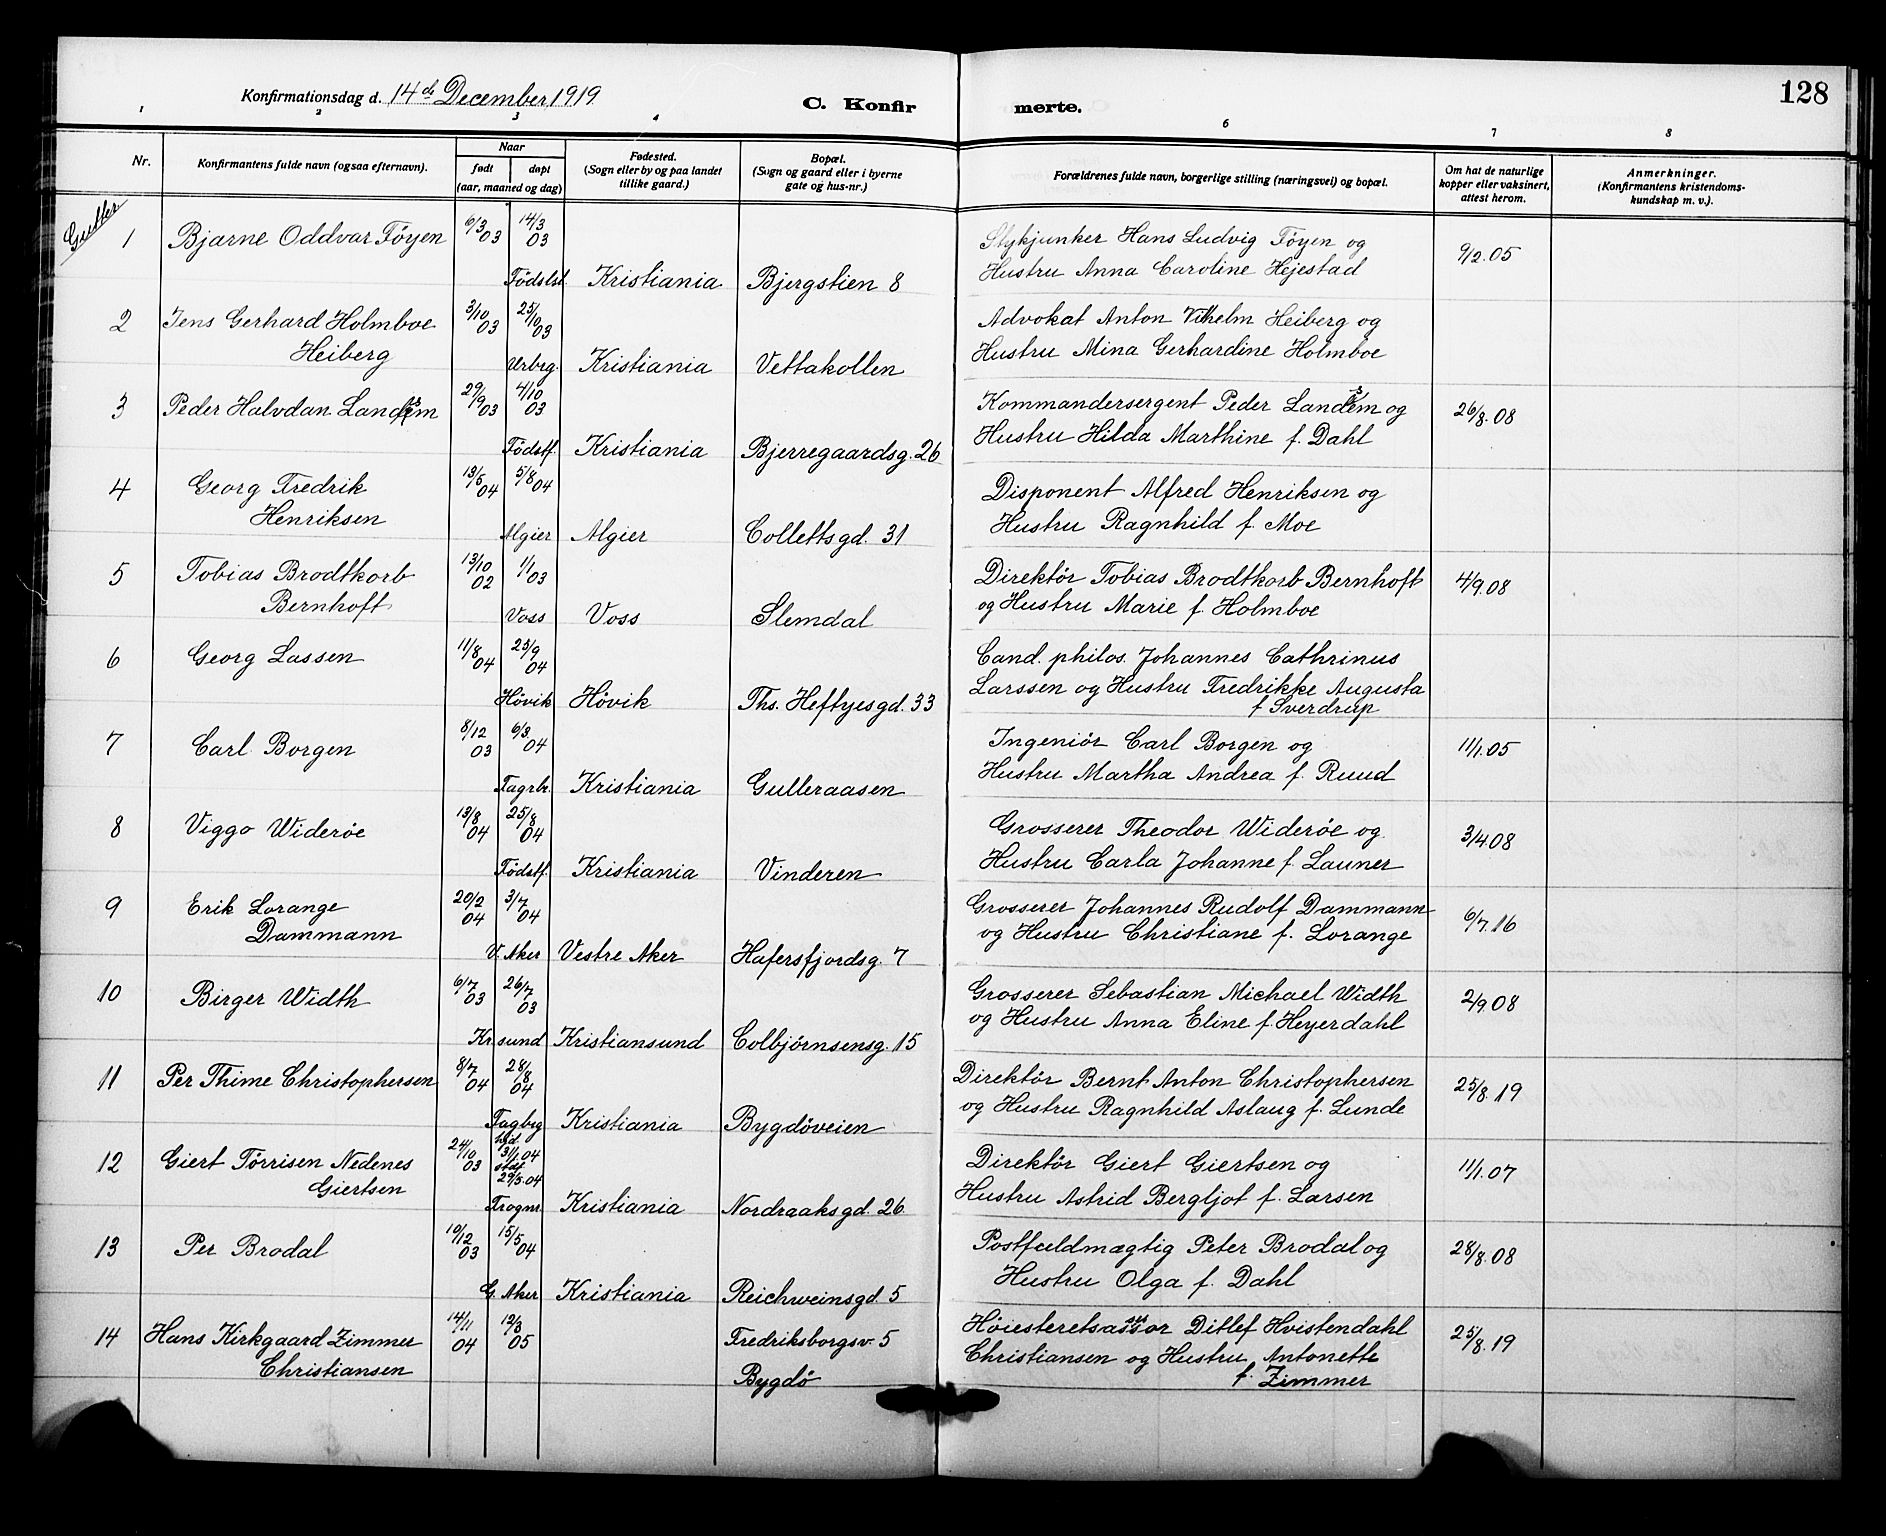 128
Konfirmationsdag d. 14de December 1919
C. Konfir merte.
1 2 3 4 6 7 8
Nr.
Konfirmantens fulde navn (ogsaa efternavn).
Naar
født døpt
(aar, maaned og dag)
Fødested.
(Sogn eller by og paa landet
tillike gaard.)
Bopæl.
(Sogn og gaard eller i byerne
gate og hus-nr.)
Forældrenes fulde navn, borgerlige stilling (næringsvei) og bopæl.
Om hat de naturlige
kopper eller vaksinert,
attest herom.
Anmerkninger.
(Konfirmantens kristendoms-
kundskap m. v.).
Gutter
1 Bjarne Oddvar Töyen 6/3 03 14/3 03 Stykjunker Hans Ludvig Töyen og 9/2.05
Födslst. Kristiania Bjergstien 8 Hustru Anna Caroline Hejestad
2 Jens Gerhard Holmboe 3/10 03 25/10 03 Advokat Anton Vilhelm Heiberg og
Heiberg Urbrg. Kristiania Vettakollen Hustru Mina Gerhardine Holmboe
3 Peder Halvdan 29/9 03 4/10 03 Kommandersergent Peder og 26/8.08
Födstf. Kristiania Bjerregaardsg. 26 Hustru Hilda Marthine f. Dahl
4 Georg Fredrik 13/5 04 5/8 04 Disponent Alfred Henriksen og
Henriksen Algier Algier Collettsgd. 31 Hustru Ragnhild f. Moe
5 Tobias Brodtkorb 13/10 02 1/1 03 Direktör Tobias Brodtkorb Bernhoft 4/9.08
Bernhoft Voss Voss Slemdal og Hustru Marie f. Holmboe
6 Georg Lassen 11/8 04 25/9 04 Cand. philos. Johannes Cathrinus
Hövik Hövik Ths. Heftyesgd. 33 Larssen og Hustru Fredrikke Augusta
f Sverdrup
7 Carl Borgen 8/12 03 6/3 04 Ingeniör Carl Borgen og 11/1.05
Fagrb. Kristiania Gulleraasen Hustru Martha Andrea f. Ruud
8 Viggo Wideröe 13/8 04 25/8 04 Grosserer Theodor Wideröe og 3/4.08
Födstf. Kristiania Vinderen Hustru Carla Johanne f. Launer
9 Erik Lorange 20/2 04 3/7 04 Grosserer Johannes Rudolf Dammann 6/7.16
Dammann V. Aker Vestre Aker Hafersfjordsg. 7 og Hustru Christiane f. Lorange
10 Birger Width 6/7 03 26/7 03 Grosserer Sebastian Michael Width 2/9.08
Kr.sund Kristiansund Colbjörnsensg. 15 og Hustru Anna Eline f. Heyerdahl
11 Per Thime Christophersen 8/7 04 28/8 04 Direktör Bernt Anton Christophersen 25/8.19
Fagbrg Kristiania Bygdöveien og Hustru Ragnhild Aslaug f. Lunde
12 Giert Törrisen Nedenes 24/10 03 hjd. 31/1.04 stdf 29/5.04 Direktör Giert Giertsen og 11/1.07
Giertsen Frognr. Kristiania Nordraaksgd. 26 Hustru Astrid Bergljot f. Larsen
13 Per Brodal 10/12 03 15/5 04 Postfuldmægtig Peter Brodal og 28/8.08
G. Aker Kristiania Reichweinsgd. 5 Hustru Olga f. Dahl
14 Hans Kirkgaard Zimmer 14/11 04 12/3 05 Fredriksborgsv. 5 Höiesteretsassessor Ditlef Hvistendahl 25/8.19
Christiansen Bygdö Christiansen og Hustru Antonette
f. Zimmer